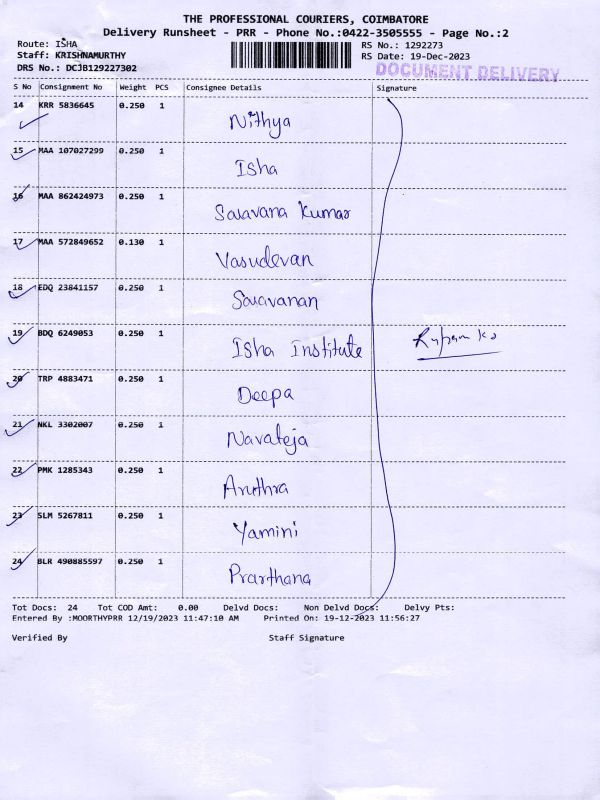 THE PROFESSIONAL COURIERS, COIMBATORE
Delivery Runsheet - PRR - Phone No.:0422-3505555 - Page No.:2
Route: ISHA
Staff: KRISHNAMURTHY
DRS No.: DCJB129227302
RS No.: 1292273
RS Date: 19-Dec-2023
DOCUMENT DELIVERY
S No Consignment No Weight PCS Consignee Details Signature
14 KRR 5836645 0.250 1 Nithya
15 MAA 107027299 0.250 1 Isha
16 MAA 862424973 0.250 1 Saravana Kumar
17 MAA 572849652 0.130 1 Vasudevan
18 EDQ 23841157 0.250 1 Saravanan
19 BDQ 6249053 0.250 1 Isha Institute
20 TRP 4883471 0.250 1 Deepa
21 NKL 3302007 0.250 1 Navateja
22 PMK 1285343 0.250 1 Aruthra
23 SLM 5267811 0.250 1 Yamini
24 BLR 490885597 0.250 1 Prarthana
Tot Docs: 24 Tot COD Amt: 0.00 Delvd Docs: Non Delvd Docs: Delvy Pts:
Entered By :MOORTHYPRR 12/19/2023 11:47:10 AM Printed On: 19-12-2023 11:56:27
Verified By Staff Signature